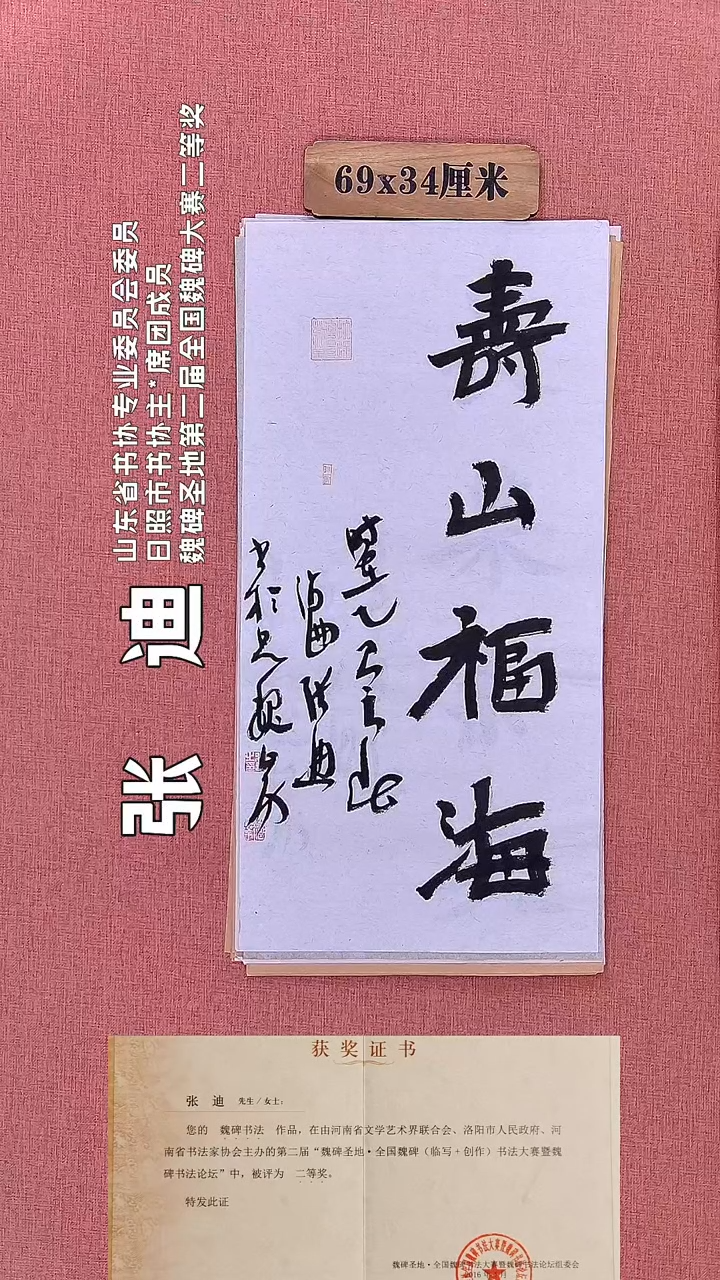 69x34厘米
壽山福海
山东省书协专业委员会委员
日照市书协主*席团成员
魏碑圣地第二届全国魏碑大赛二等奖
张 迪
获奖证书
张 迪 先生/女士：
您的 魏碑书法 作品，在由河南省文学艺术界联合会、洛阳市人民政府、河
南省书法家协会主办的第二届“魏碑圣地·全国魏碑（临写+创作）书法大赛暨魏
碑书法论坛”中，被评为 二等奖。
特发此证
魏碑圣地·全国魏碑书法大赛暨魏碑书法论坛组委会